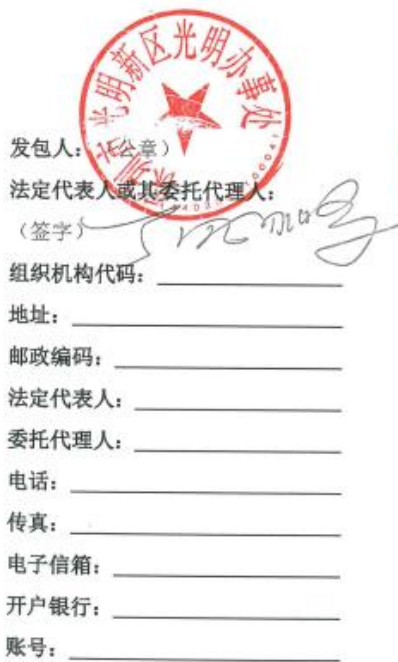 深圳市光明新区光明办事处
发包人：（公章）
法定代表人或其委托代理人：
（签字）
组织机构代码：
地址：
邮政编码：
法定代表人：
委托代理人：
电话：
传真：
电子信箱：
开户银行：
账号：